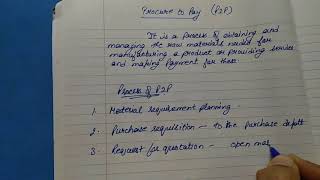 Procure to Pay (P2P)
It is a process of obtaining and
managing the raw materials needed for
manufacturing a product or providing service
and making payment for those
Process of P2P
1. Material requirement planning.
2. Purchase requisition - to the purchase deptt
3. Request for quotation - open mar